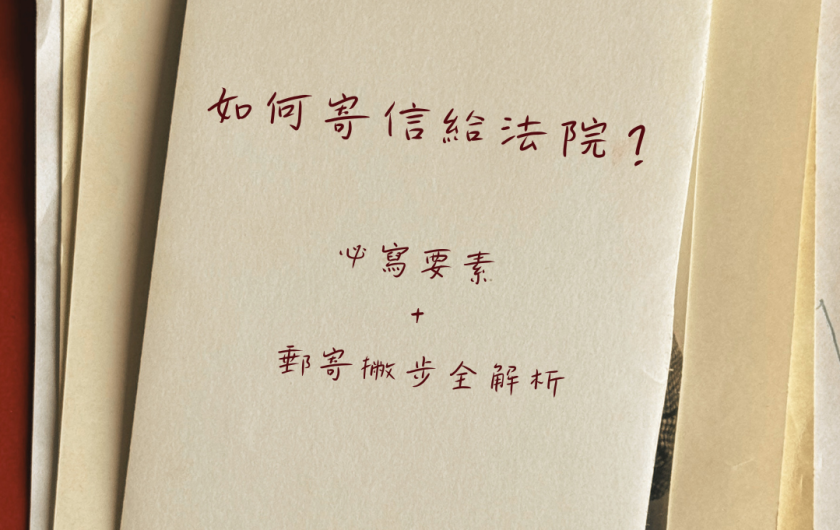 如何寄信給法院?
必寫要素
+
郵寄撇步全解析